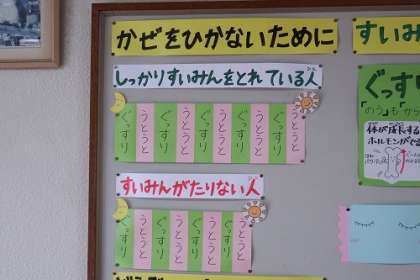 かぜをひかないために
しっかりすいみんをとれている人
うとうと
ぐっすり
うとうと
ぐっすり
うとうと
ぐっすり
うとうと
ぐっすり
うとうと
すいみんがたりない人
ぐっすり
うとうと
ぐっすり
うとうと
ぐっすり
うとうと
ぐっすり
うとうと
すいみ
ぐっすり
「のう」も「から
体が成長する
ホルモンが